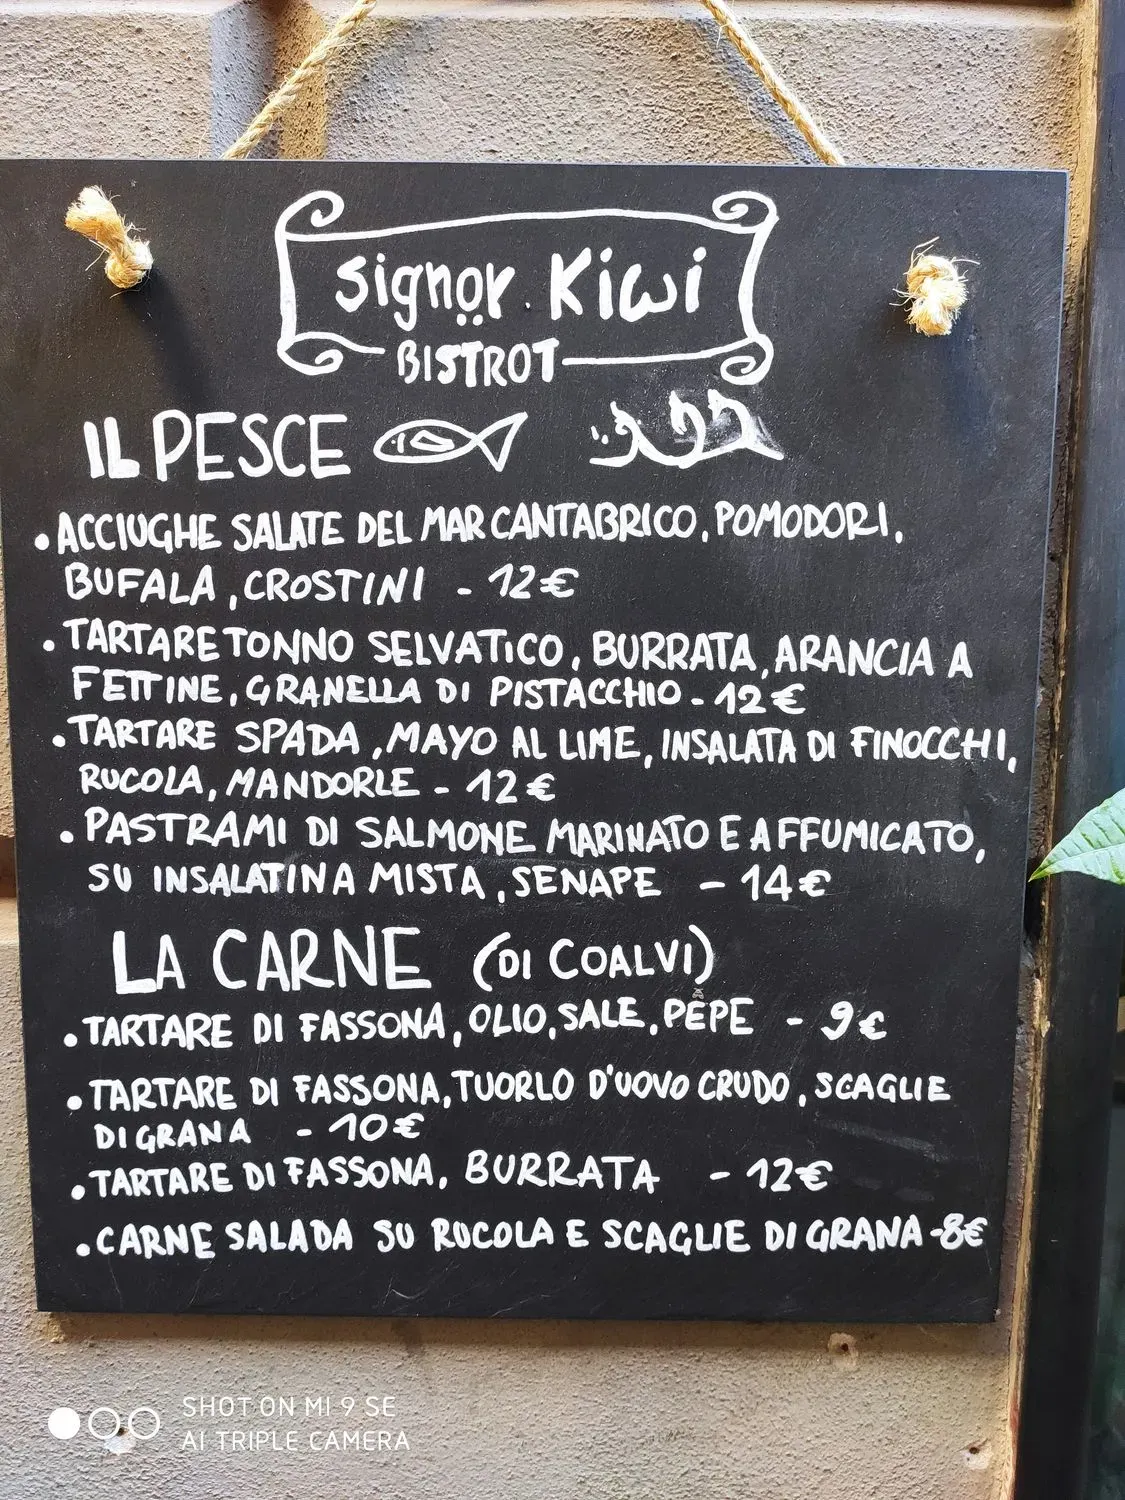 Signor Kiwi
BISTROT
IL PESCE
• ACCIUGHE SALATE DEL MAR CANTABRICO, POMODORI,
BUFALA, CROSTINI - 12€
• TARTARE TONNO SELVATICO, BURRATA, ARANCIA A
FETTINE, GRANELLA DI PISTACCHIO - 12€
• TARTARE SPADA, MAYO AL LIME, INSALATA DI FINOCCHI,
RUCOLA, MANDORLE - 12€
• PASTRAMI DI SALMONE MARINATO E AFFUMICATO,
SU INSALATINA MISTA, SENAPE - 14€
LA CARNE (DI COALVI)
• TARTARE DI FASSONA, OLIO, SALE, PEPE - 9€
• TARTARE DI FASSONA, TUORLO D'UOVO CRUDO, SCAGLIE
DI GRANA - 10€
• TARTARE DI FASSONA, BURRATA - 12€
• CARNE SALADA SU RUCOLA E SCAGLIE DI GRANA - 8€
SHOT ON MI 9 SE
AI TRIPLE CAMERA